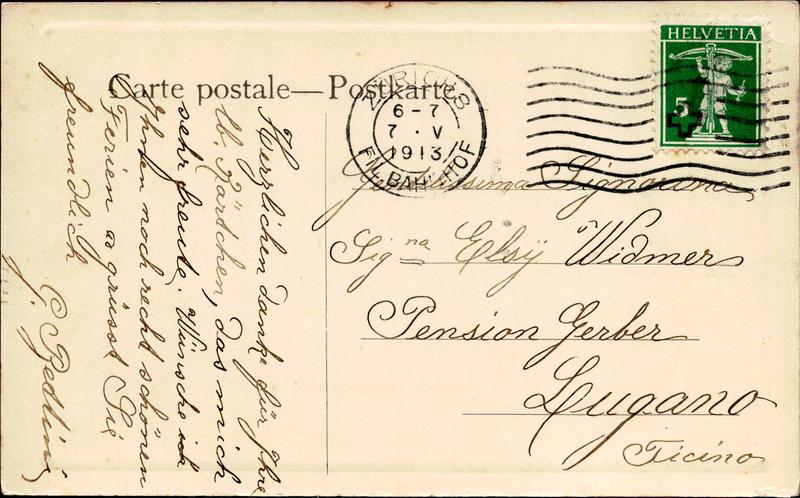 Carte postale — Postkarte
Herzlichen Danke für Ihre
lb. Kärtchen, das mich
sehr freute. Wünsche ich
Ihnen noch recht schönen
Ferien & grüsst Sie
freundlich
ZÜRICH 8
6-7
7. V
1913
FIL. BAHNHOF
HELVETIA
5
Gentilissima Signorina
Sig na Elsÿ Widmer
Pension Gerber
Lugano
Ticino